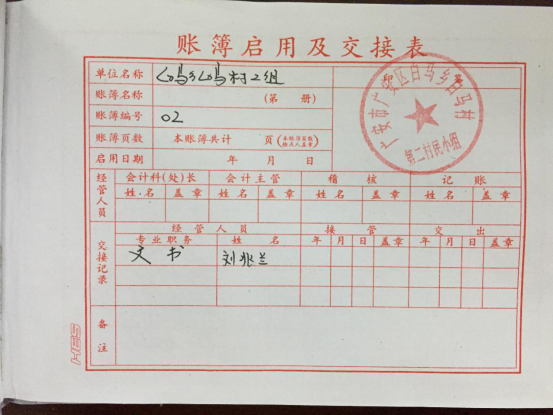 账簿启用及交接表
单位名称 白马乡白马村2组 印鉴
账簿名称 (第 册)
账簿编号 02
账簿页数 本账簿共计 页(本账簿页数 检点人盖章)
启用日期 年 月 日
广安市广安区白马乡白马村
第二村民小组
经管人员 会计科(处)长 会计主管 稽核 记账
姓名 盖章 姓名 盖章 姓名 盖章 姓名 盖章
交接记录 经管人员 接管 交出
专业职务 姓名 年 月 日 盖章 年 月 日 盖章
文书 刘兆兰
备注